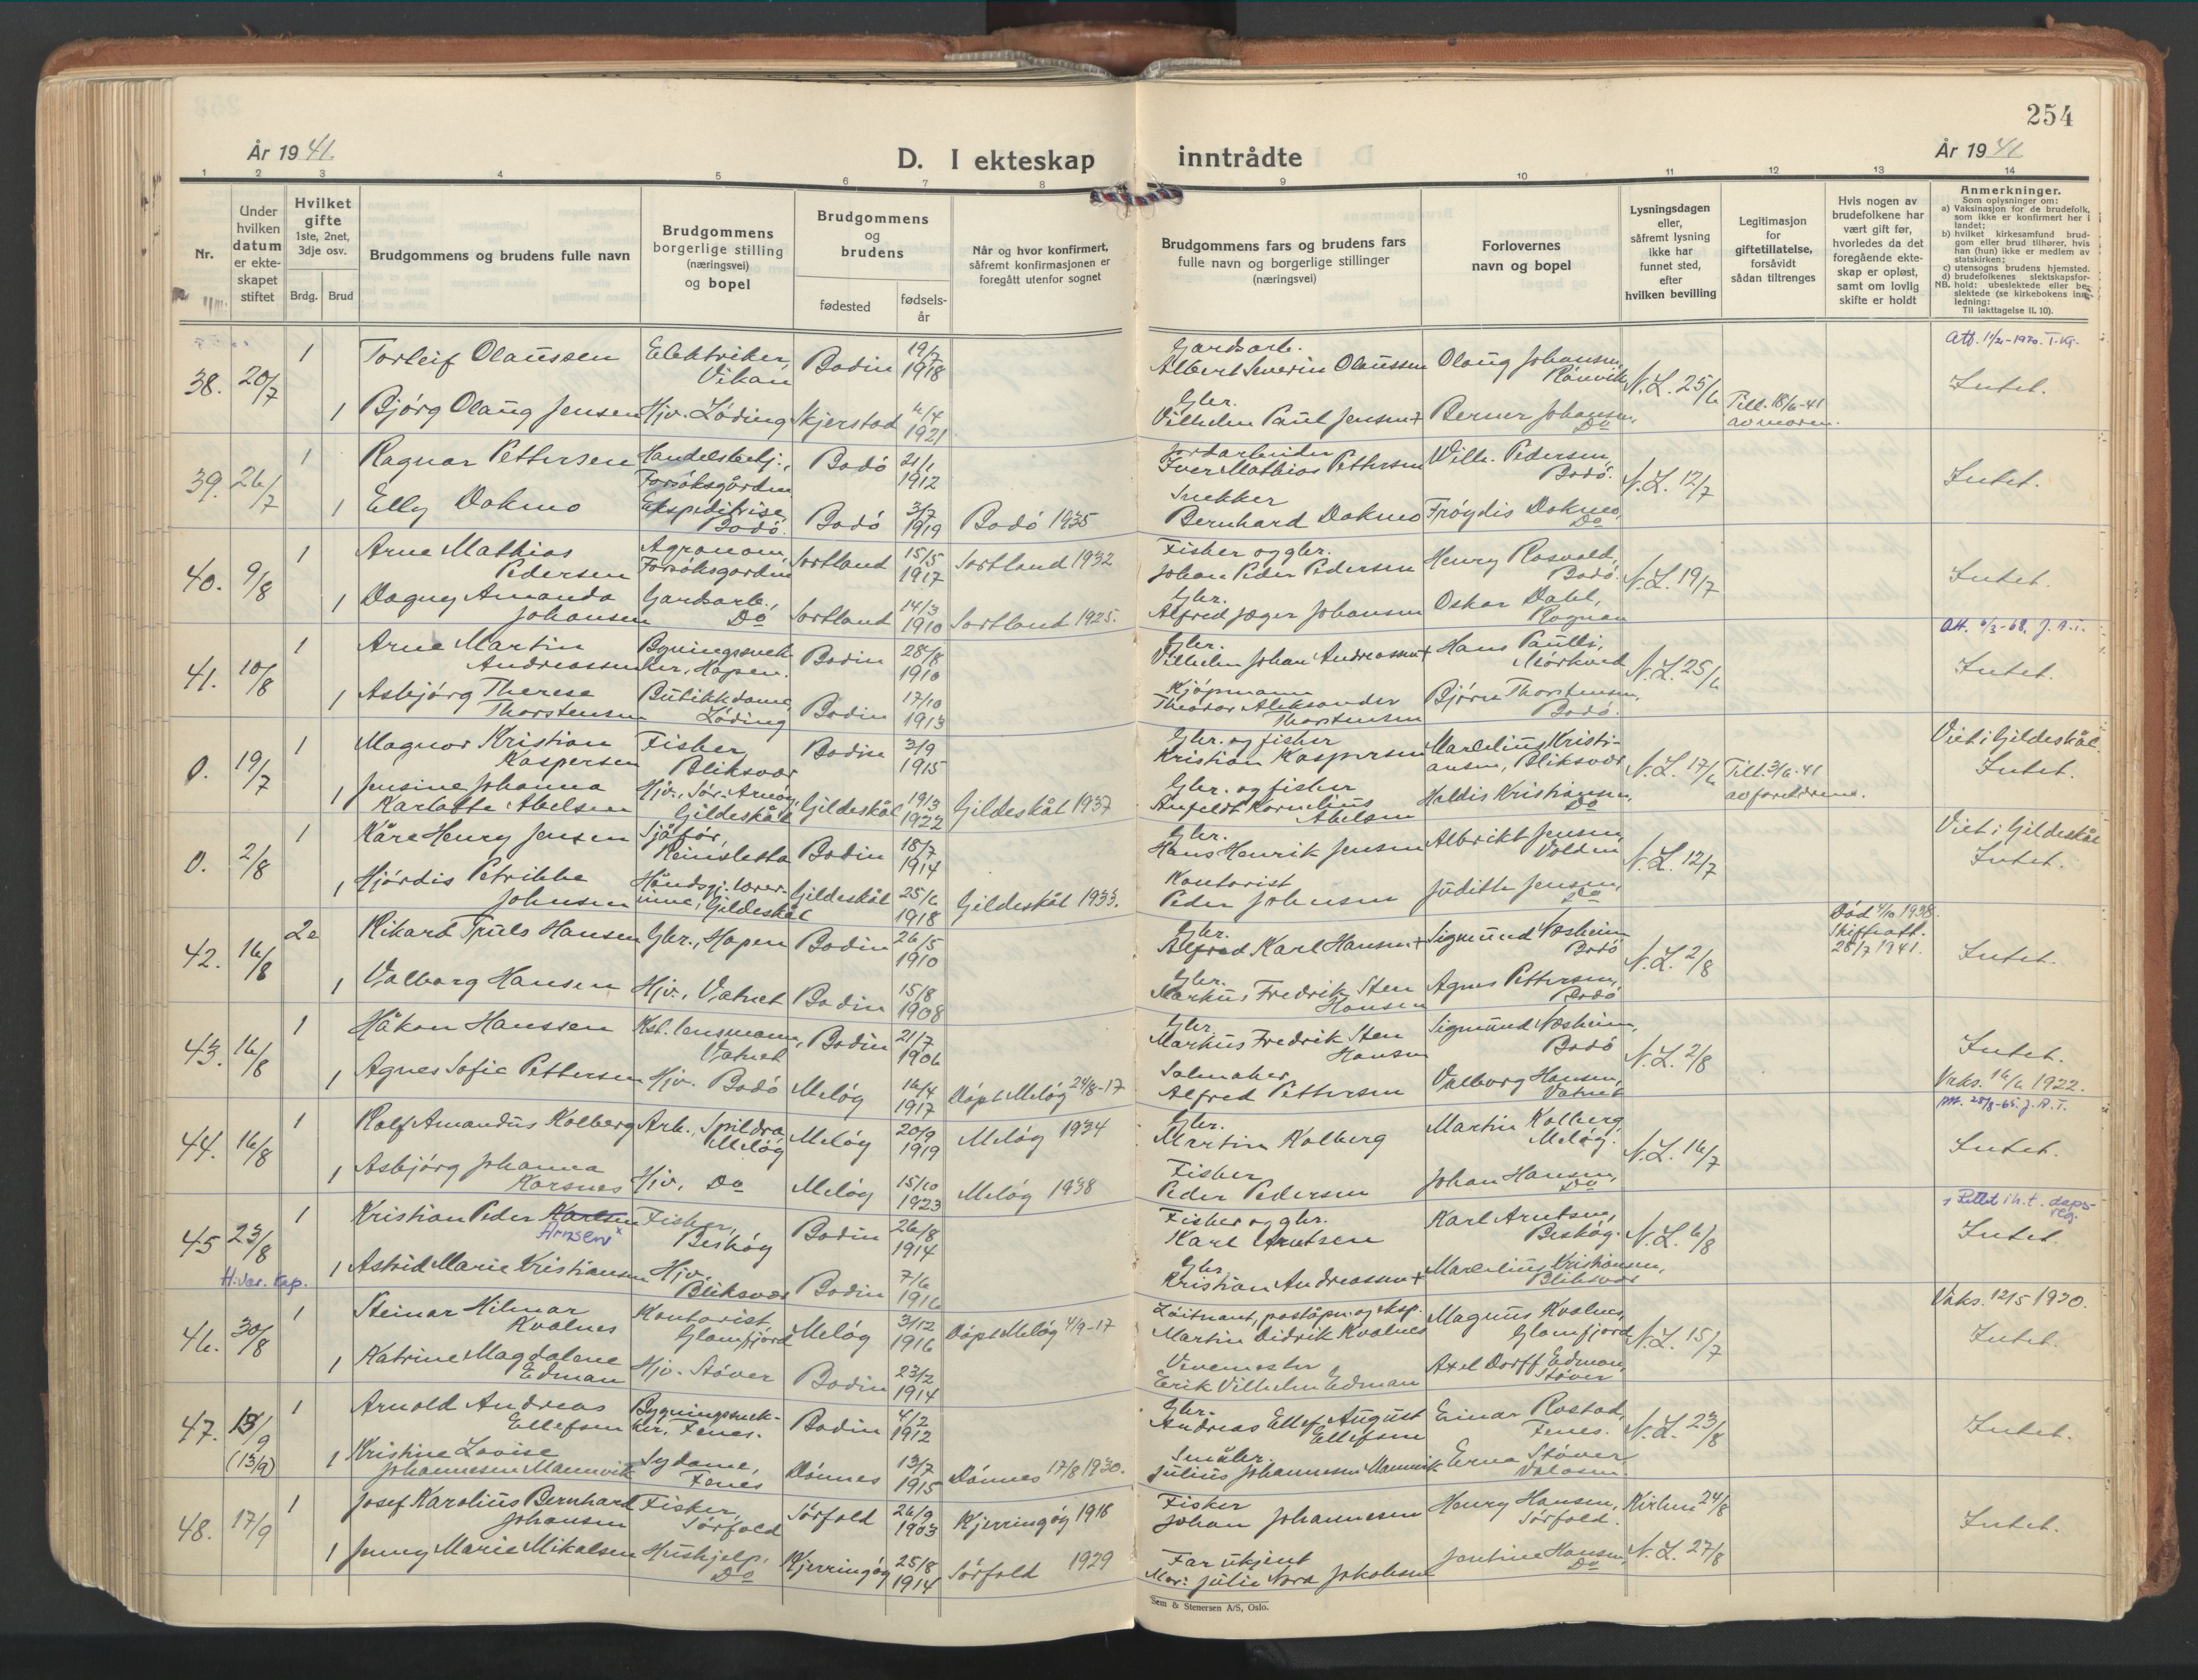 254
År 1941.
D. I ekteskap
inntrådte
År 1941
1 2 3 4 5 6 7 8 9 10 11 12 13 14
Nr.
Under hvilken datum er ekteskapet stiftet
Hvilket gifte
1ste, 2net, 3dje osv.
Brdg. Brud
Brudgommens og brudens fulle navn
Brudgommens borgerlige stilling (næringsvei) og bopel
Brudgommens og brudens
fødested
fødselsår
Når og hvor konfirmert, såfremt konfirmasjonen er foregått utenfor sognet
Brudgommens fars og brudens fars fulle navn og borgerlige stillinger (næringsvei)
Forlovernes navn og bopel
Lysningsdagen eller, såfremt lysning ikke har funnet sted, efter hvilken bevilling
Legitimasjon for giftetillatelse, forsåvidt sådan tiltrenges
Hvis nogen av brudefolkene har vært gift før, hvorledes da det foregående ekteskap er opløst, samt om lovlig skifte er holdt
Anmerkninger.
Som oplysninger om:
a) Vaksinasjon for de brudefolk, som ikke er konfirmert her i landet;
b) hvilket kirkesamfund brudgom eller brud tilhører, hvis han (hun) ikke er medlem av statskirken;
c) utensogns brudens hjemsted.
d) brudefolkenes slektskapsforhold: ubeslektede eller beslektede (se kirkebokens innledning:
NB.
Til iakttagelse II. 10).
38. 20/7 1 Torleif Olaussen Elektriker, Vikan Bodin 19/7 1918 Gardsarb. Albert Severin Olaussen Olaug Johansen, Rönvik N.L. 25/6 Intet.
1 Bjørg Olaug Jensen Hjv. Löding Skjerstad 4/4 1921 Gbr. Vilhelm Paul Jensen+ Berner Johansen, Do Till. 18/6-41 av moren.
39. 26/7 1 Ragnar Pettersen Handelsbetj., Forsöksgården Bodö 21/1 1912 Jordarbeider Iver Mathias Pettersen Wilh. Pedersen, Bodö. N.L. 12/7 Intet.
1 Elly Dokmo Ekspeditrise, Bodö. Bodö 3/7 1919 Bodö 1935 Snekker Bernhard Dokmo Fröydis Dokmo, Do
40. 9/8 1 Arne Mathias Pedersen Agronom, Forsöksgården Sortland 15/5 1917 Sortland 1932 Fisker og gbr. Johan Peder Pedersen Henry Rosvold, Bodö. N.L. 19/7 Intet.
1 Dagny Amanda Johansen Gardsarb., Do Sortland 14/3 1910 Sortland 1925. Gbr. Alfred Jæger Johansen Oskar Dahl, Rognan
41. 10/8 1 Arne Martin Andreassen Bygningssnekker, Hopen. Bodin 28/8 1910 Gbr. Vilhelm Johan Andreassen+ Hans Paulli, Mörkved N.L. 25/6 Intet.
1 Asbjörg Therese Thorstensen Butikkdame, Löding Bodin 17/10 1913 Kjöpmann Theodor Aleksander Thorstensen Björn Thorstensen, Bodö.
0. 19/7 1 Magnor Kristian Kaspersen Fisker, Bliksvær Bodin 3/9 1915 Gbr. og fisker Kristian Kaspersen Marselius Kristiansen, Bliksvær N.L. 17/6 Viet i Gildeskål. Intet.
1 Jensine Johanna Karlotte Abelsen Hjv. Sör-Arnöy, Gildeskål Gildeskål 19/3 1922 Gildeskål 1937 Gbr. og fisker Anfeldt Kornelius Abelsen Haldis Kristiansen, Do Till. 3/6-41 av foreldrene.
0. 2/8 1 Kåre Henry Jensen Sjåför, Reinsletta Bodin 18/7 1914 Gbr. Hans Henrik Jensen Albrikt Jensen, Volden N.L. 12/7 Viet i Gildeskål Intet.
1 Hjördis Petrikke Johnsen Håndgj.lærerinne, Gildeskål Gildeskål 25/6 1918 Gildeskål 1933. Kontorist Peder Johnsen Judith Jensen, Do
42. 16/8 2e Rikard Truls Hansen Gbr., Hopen Bodin 26/5 1910 Gbr. Alfred Karl Hansen+ Sigmund Næsheim Bodö N.L. 2/8 Död 4/10 1938. Skifteatt. 28/7 1941. Intet.
1 Valborg Hansen Hjv., Vatnet Bodin 15/8 1908 Gbr. Markus Fredrik Sten Hansen Agnes Pettersen, Bodö
43. 16/8 1 Håkon Hanssen Kst. lensmann, Vatnet Bodin 21/7 1906 Gbr. Markus Fredrik Sten Hansen Sigmund Næsheim, Bodö N.L. 2/8 Intet.
1 Agnes Sofie Pettersen Hjv. Bodö Melöy 16/4 1917 Döpt Melöy 24/8-17 Salmaker Alfred Pettersen Valborg Hansen, Vatnet Vaks. 16/6 1922.
44. 16/8 1 Rolf Amandus Kolberg Arb., Spildra Melöy Melöy 20/9 1919 Melöy 1934 Gbr. Martin Kolberg Martin Kolberg, Melöy. N.L. 16/7 Intet.
1 Asbjörg Johanna Korsnes Hjv. Do Melöy 15/10 1923 Melöy 1938 Fisker Peder Pedersen Johan Hansen, Do
45 23/8 1 Kristian Peder Karlsen Arnsen x Fisker, Beskøy Bodin 26/8 1914 Fisker og gbr. Karl Arntsen Karl Arntsen, Beskøy. N.L. 6/8 Intet.
H.vær. kap. 1 Astrid Marie Kristiansen Hjv. Bliksvær Bodin 7/6 1916 Gbr. Kristian Andreassen+ Marselius Kristiansen, Bliksvær
46. 30/8 1 Steinar Hilmar Kvalnes Kontorist, Glomfjord Melöy 3/12 1916 Döpt Melöy 4/9-17 Löitnant, poståpn. og eksp. Martin Didrik Kvalnes Magnus Kvalnes, Glomfjord N.L. 15/7 Vaks. 12/5 1930. Intet.
1 Katrine Magdalene Edman Hjv. Stöver Bodin 23/2 1914 Vevemester Erik Vilhelm Edman Axel Dorff Edman, Stöver
47. 13/9 (13/9) 1 Arnold Andreas Ellefsen Bygningssnekker, Fenes. Bodin 4/2 1912 Gbr. Andreas Ellef August Ellefsen Einar Rostad, Fenes. N.L. 23/8 Intet.
1 Kristine Lovise Johannesen Mannvik Sydame, Fenes Dönnes 13/7 1915 Dönnes 17/8 1930. Småbr. Julius Johannesen Mannvik Erna Stöver
48. 17/9 1 Josef Karolius Bernhard Johansen Fisker, Sörfold Sörfold 26/9 1903 Kjerringöy 1918 Fisker Johan Johannesen Henry Hansen, Sörfold. Kirken 24/8 Intet.
1 Jenny Marie Mikalsen Hushjelp, Do Kjerringöy 25/8 1914 Sörfold 1929 Far ukjent Mor: Julie Nora Jakobsen Jentine Hansen, Do N.L. 27/8
Sem & Stenersen A/S, Oslo.